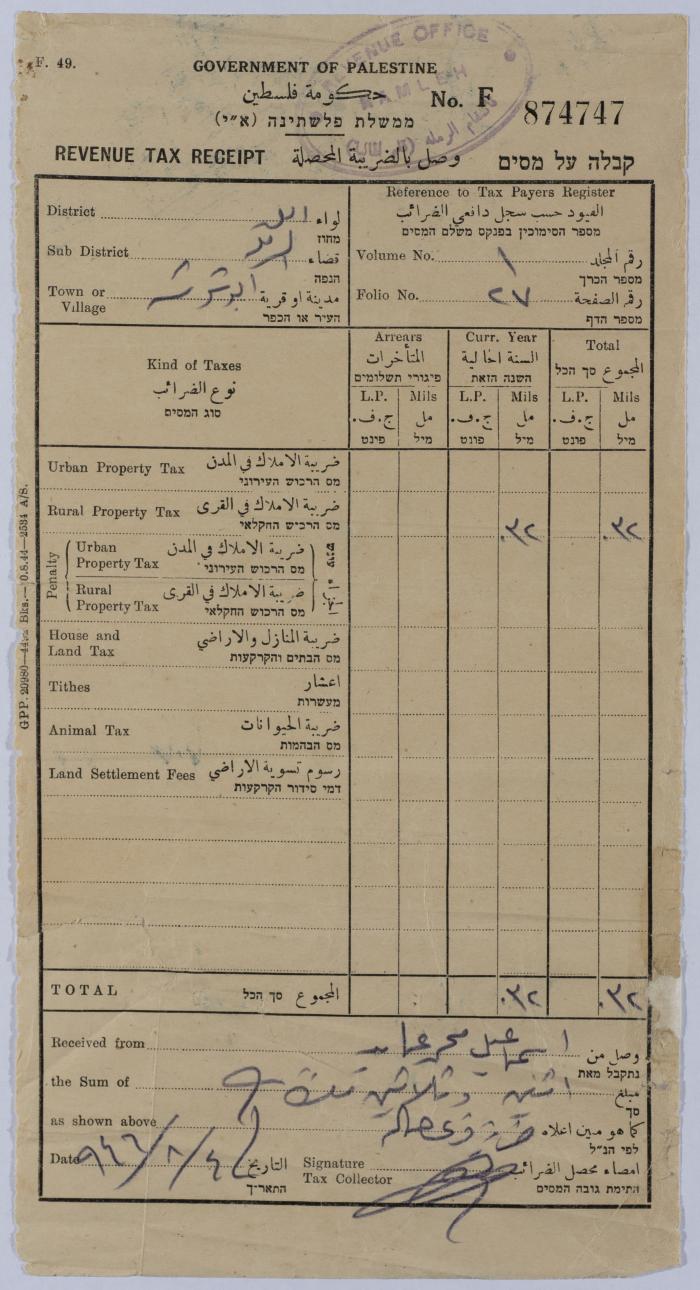 F. 49.
REVENUE OFFICE
RAMLEH
GOVERNMENT OF PALESTINE
حكومة فلسطين
No. F 874747
ממשלת פלשתינה (א״י)
REVENUE TAX RECEIPT وصل بالضريبة المحصلة קבלה על מסים
District لواء اللد
מחוז
Sub District قضاء الرملة
הנפה
Town or Village مدينة او قرية ابو شوشة
העיר או הכפר
Reference to Tax Payers Register
القيود حسب سجل دافعي الضرائب
מספר הסימוכין בפנקס משלם המסים
Volume No. ١ رقم المجلد
מספר הכרך
Folio No. ٢٧ رقم الصفحة
מספר הדף
Kind of Taxes
نوع الضرائب
סוג המסים
Arrears
المتأخرات
פיגורי תשלומים
Curr. Year
السنة الحالية
השנה הזאת
Total
المجموع סך הכל
L.P. Mils L.P. Mils L.P. Mils
ج.ف. مل ج.ف. مل ج.ف. مل
פונט מיל פונט מיל פונט מיל
Urban Property Tax ضريبة الاملاك في المدن
מס הרכוש העירוני
Rural Property Tax ضريبة الاملاك في القرى
מס הרכוש החקלאי
٠٣٢ ٠٣٢
Penalty
Urban Property Tax ضريبة الاملاك في المدن
מס הרכוש העירוני
Rural Property Tax ضريبة الاملاك في القرى
מס הרכוש החקלאי
עונש
House and Land Tax ضريبة المنازل والاراضي
מס הבתים והקרקעות
Tithes اعشار
מעשרות
Animal Tax ضريبة الحيوانات
מס הבהמות
Land Settlement Fees رسوم تسوية الاراضي
דמי סידור הקרקעות
TOTAL المجموع סך הכל ٠٣٢ ٠٣٢
Received from وصل من اسماعيل محمد
נתקבל מאת
the Sum of مبلغ اثنين وثلاثين
סך
as shown above كما هو مبين اعلاه
לפי הנ״ל
Date ٩٤٦/٨/ التاريخ
התאריך
Signature Tax Collector امضاء محصل الضرائب
חתימת גובה המסים